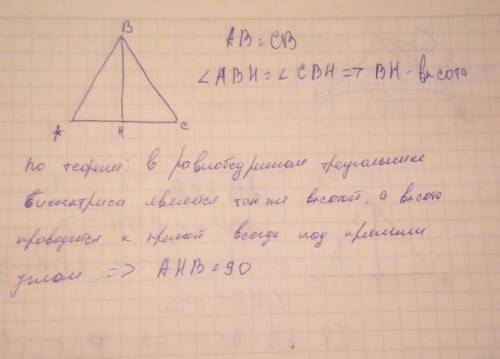 B
A
H
C
AB = CB
∠ABH = ∠CBH => BH - высота
По теореме: в равнобедренном треугольнике
биссектриса является так же высотой, а высота
проводится к прямой всегда под прямым
углом => AHB = 90